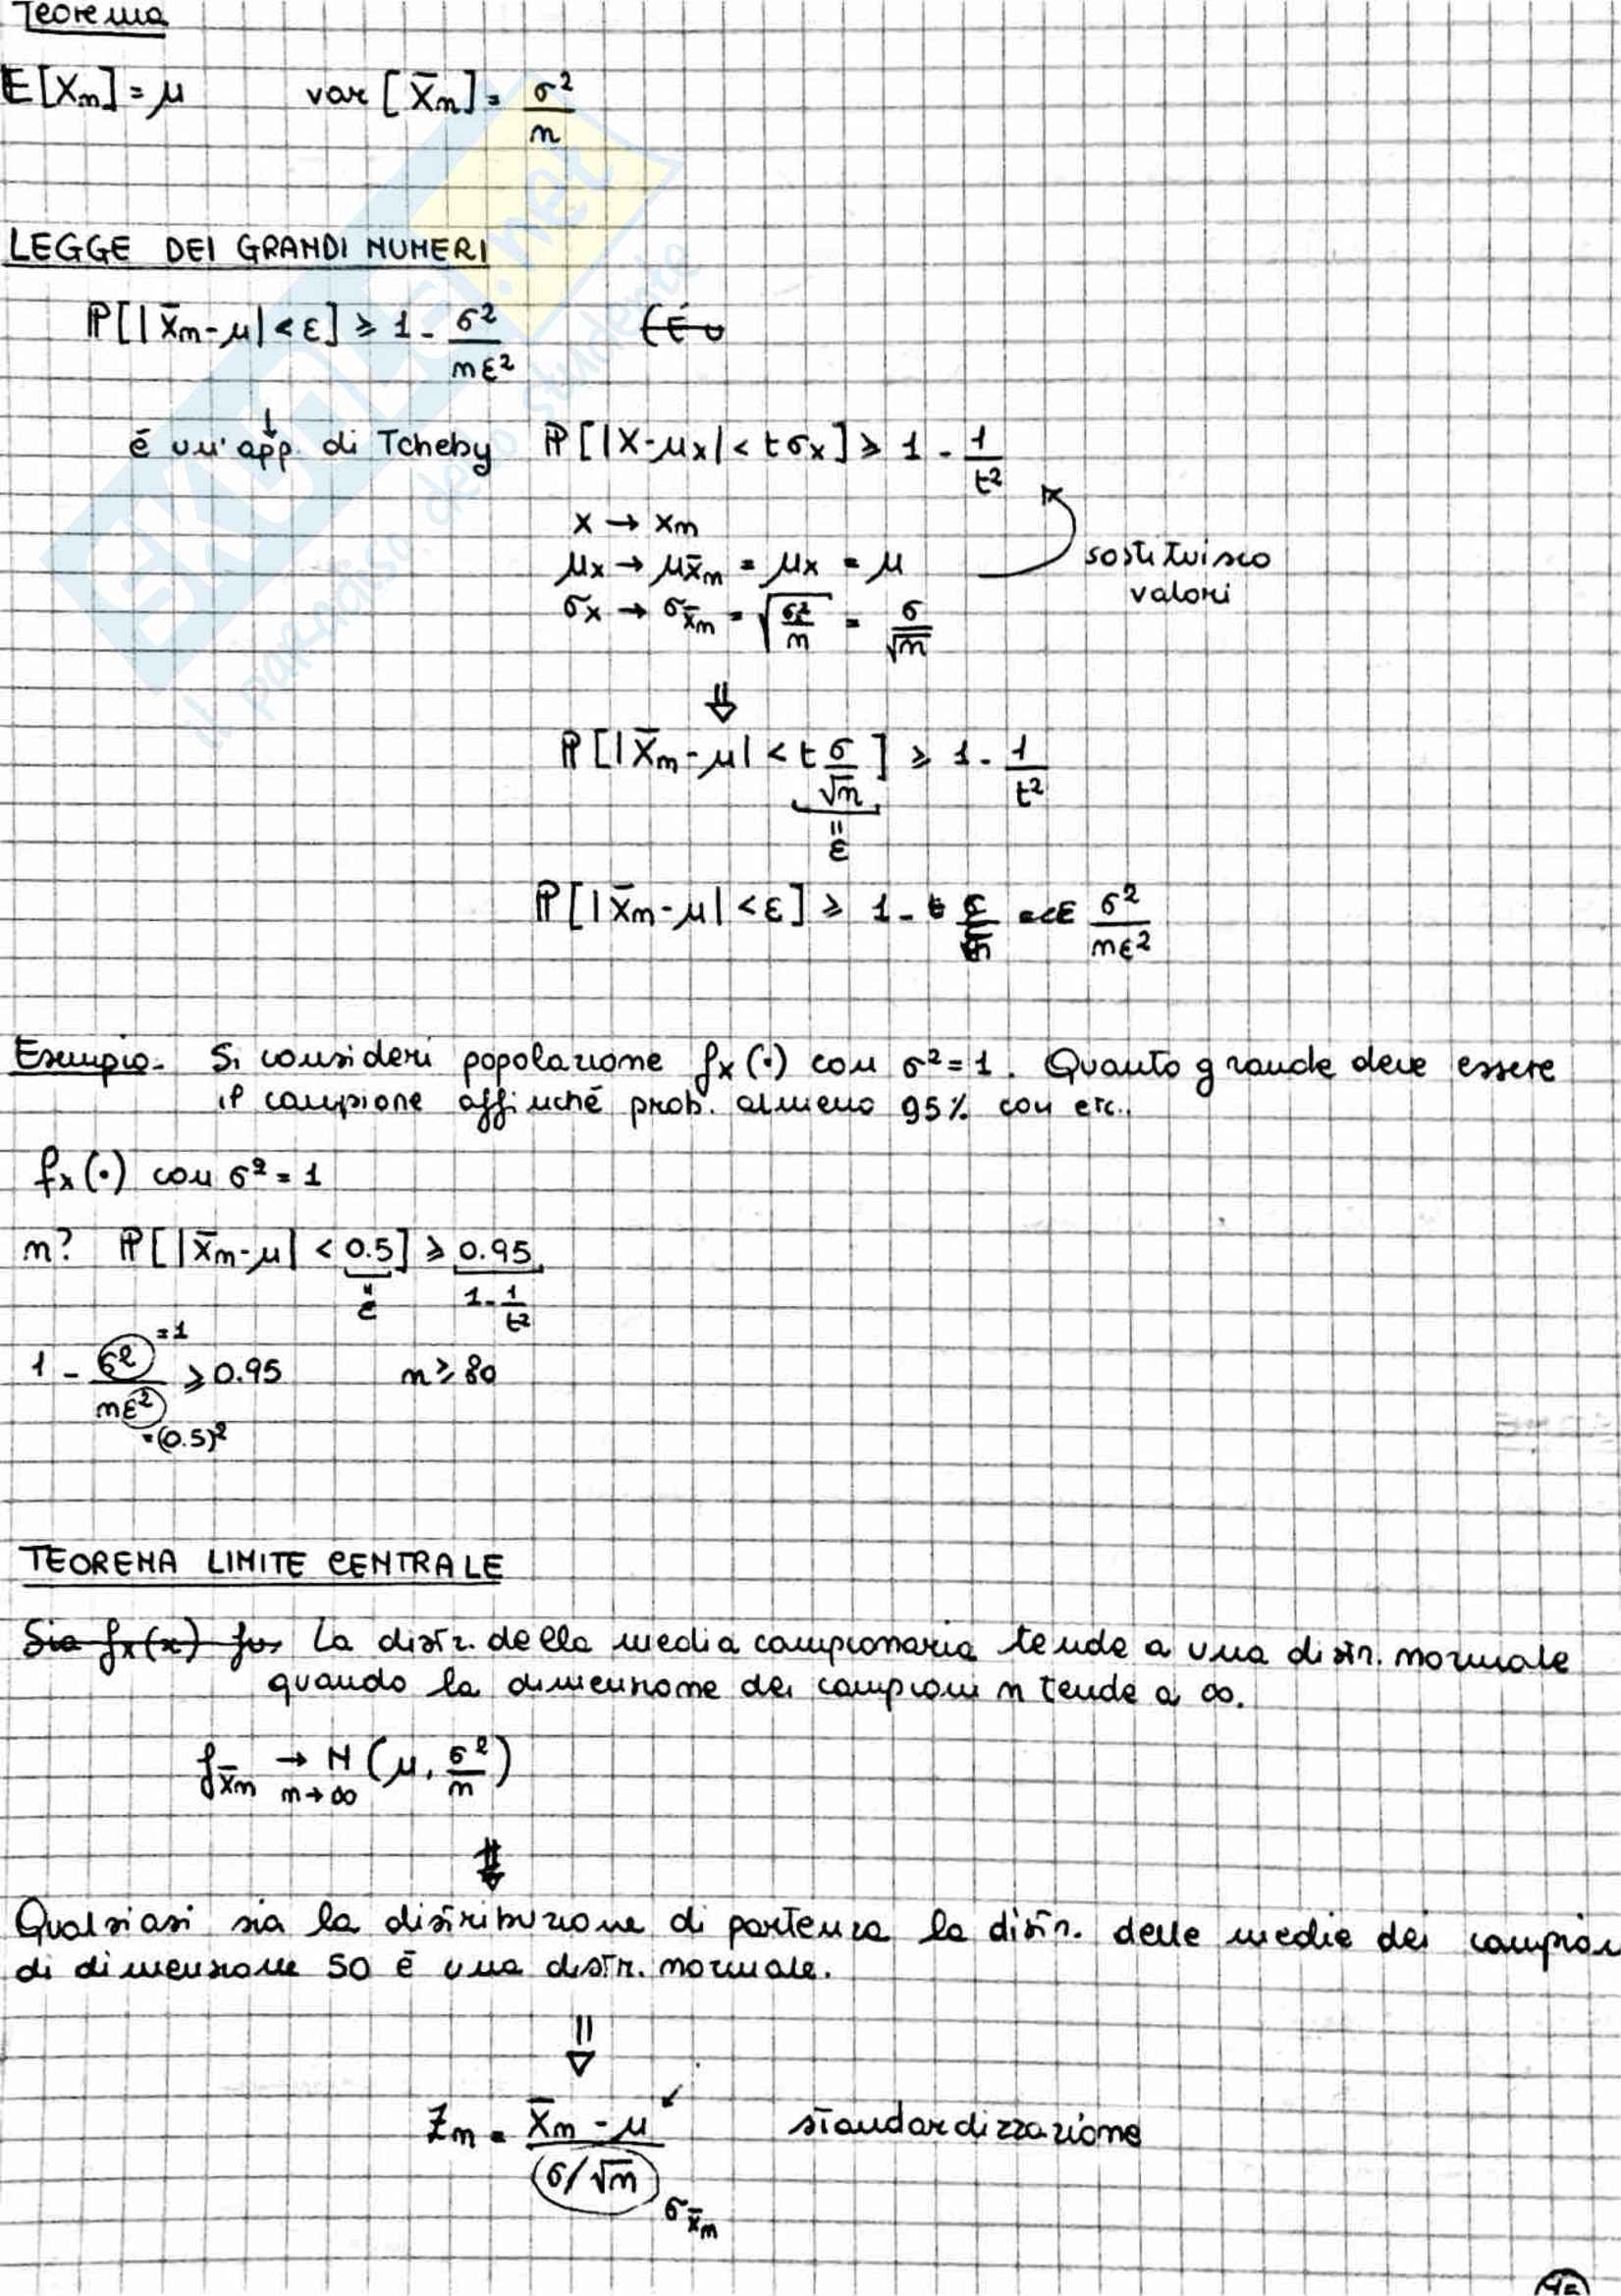 Teorema
E[Xn] = μ var [X̄n] = σ²/n
LEGGE DEI GRANDI NUMERI
P[|X̄n-μ| < ε] ≥ 1 - σ²/nε² (É u
é un'app. di Tcheby P[|X-μx| < tσx] ≥ 1 - 1/t²
x → xn
μx → μx̄n = μx = μ
σx → σx̄n = √(σ²/n) = σ/√n
sostituisco
valori
⇓
P[|X̄n-μ| < t σ/√n] ≥ 1 - 1/t²
=
ε
P[|X̄n-μ| < ε] ≥ 1 - σ²/nε²
Esempio. Si consideri popolazione fx(·) con σ²=1. Quanto grande deve essere
il campione affinché prob. almeno 95% con etc..
fx(·) con σ² = 1
n? P[|X̄n-μ| < 0.5] ≥ 0.95
= ε 1 - 1/t²
1 - σ²/nε² ≥ 0.95 n ≥ 80
=1
=(0.5)²
TEOREMA LIMITE CENTRALE
Sia fx(x) fu La distr. della media campionaria tende a una distr. normale
quando la dimensione dei campioni n tende a ∞.
fx̄n → N (μ, σ²/n)
n→∞
⇓
Qualsiasi sia la distribuzione di partenza la distr. delle medie dei campion
di dimensione 50 é una distr. normale.
⇓
Zn = (X̄n - μ)/(σ/√n) standardizzazione
σx̄n
SKUOLA.net
il paradiso dello studente